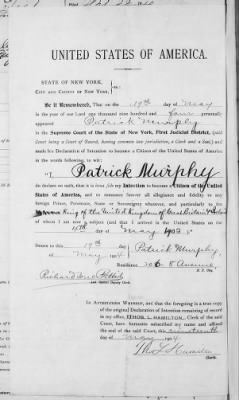 UNITED STATES OF AMERICA.
STATE OF NEW YORK,
CITY AND COUNTY OF NEW YORK,
Be it Remembered, That on the 19th day of May
in the year of our Lord one thousand nine hundred and four personally
appeared Patrick Murphy
in the Supreme Court of the State of New York, First Judicial District, (said
Court being a Court of Record, having common law jurisdiction, a Clerk and a Seal), and
made his Declaration of Intention to become a Citizen of the United States of America
in the words following, to wit:
"I, Patrick Murphy
do declare on oath, that it is bona fide my Intention to become a Citizen of the United
States of America, and to renounce forever all allegiance and fidelity to any
foreign Prince, Potentate, State or Sovereignty whatever, and particularly to the
King of the United Kingdom of Great Britain & Ireland
of whom I am now a subject (and that I arrived in the United States on the
day of May
Sworn to this 19th
day of May 1904
Patrick Murphy
Residence 206 8 Avenue
N. Y. City
Special Deputy Clerk.
IN ATTESTATION WHEREOF, and that the foregoing is a true copy
of the original Declaration of Intention remaining of record
in my office, I THOS. L. HAMILTON, Clerk of the said
Court, have hereunto subscribed my name and affixed
the seal of the said Court, this nineteenth
day of May 1904
Thos L Hamilton
Clerk